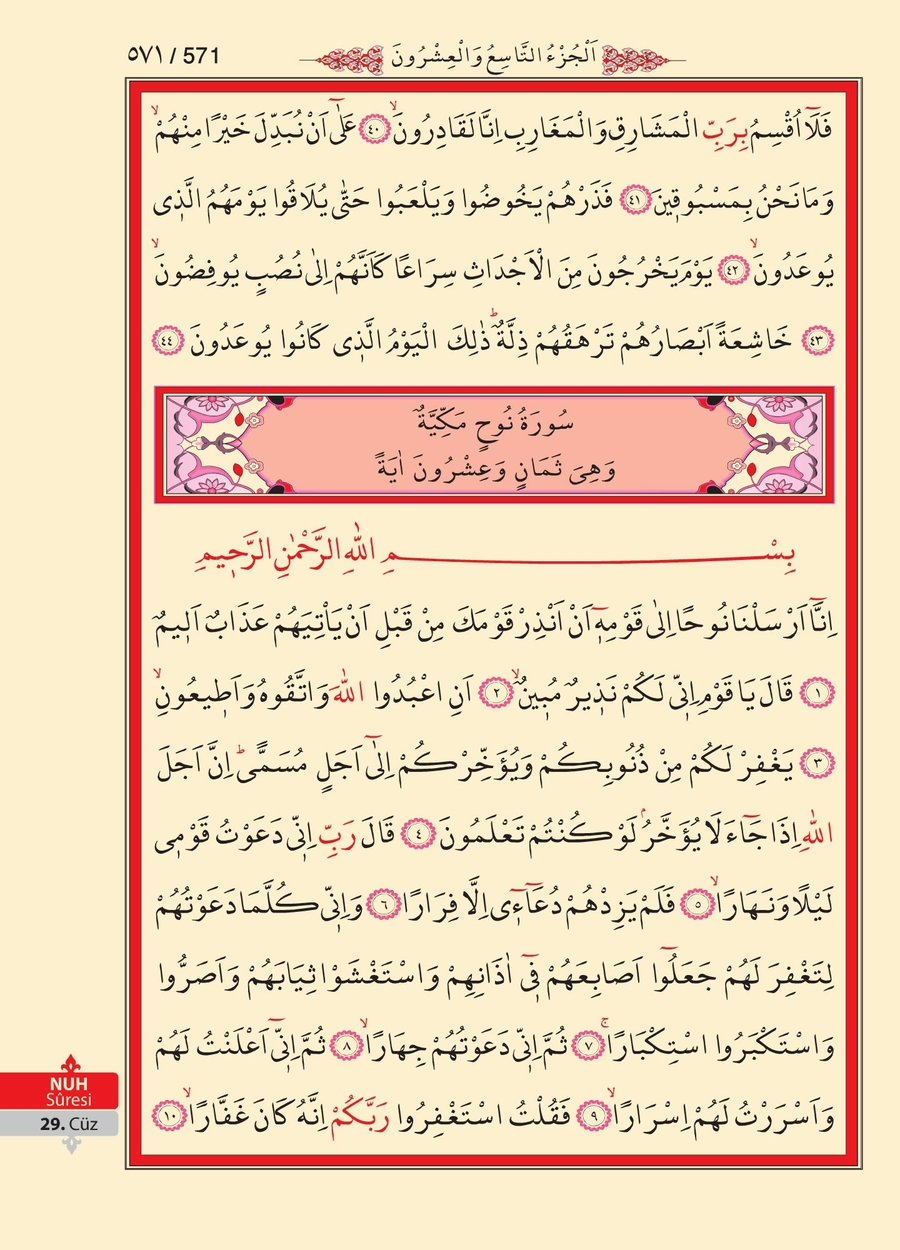 اَلْجُزْءُ التَّاسِعُ وَالْعِشْرُونَ
٥٧١ / 571
فَلَٓا اُقْسِمُ بِرَبِّ الْمَشَارِقِ وَالْمَغَارِبِ اِنَّا لَقَادِرُونَۙ ﴿٤٠﴾ عَلٰٓى اَنْ نُبَدِّلَ خَيْرًا مِنْهُمْۙ
وَمَا نَحْنُ بِمَسْبُوق۪ينَ ﴿٤١﴾ فَذَرْهُمْ يَخُوضُوا وَيَلْعَبُوا حَتّٰى يُلَاقُوا يَوْمَهُمُ الَّذ۪ى
يُوعَدُونَۙ ﴿٤٢﴾ يَوْمَ يَخْرُجُونَ مِنَ الْاَجْدَاثِ سِرَاعًا كَاَنَّهُمْ اِلٰى نُصُبٍ يُوفِضُونَۙ
﴿٤٣﴾ خَاشِعَةً اَبْصَارُهُمْ تَرْهَقُهُمْ ذِلَّةٌۜ ذٰلِكَ الْيَوْمُ الَّذ۪ى كَانُوا يُوعَدُونَ ﴿٤٤﴾
سُورَةُ نُوحٍ مَكِّيَّةٌ
وَهِىَ ثَمَانٍ وَعِشْرُونَ اٰيَةً
بِسْمِ اللّٰهِ الرَّحْمٰنِ الرَّح۪يمِ
اِنَّٓا اَرْسَلْنَا نُوحًا اِلٰى قَوْمِه۪ٓ اَنْ اَنْذِرْ قَوْمَكَ مِنْ قَبْلِ اَنْ يَأْتِيَهُمْ عَذَابٌ اَل۪يمٌ
﴿١﴾ قَالَ يَا قَوْمِ اِنّ۪ى لَكُمْ نَذ۪يرٌ مُب۪ينٌۙ ﴿٢﴾ اَنِ اعْبُدُوا اللّٰهَ وَاتَّقُوهُ وَاَط۪يعُونِۙ
﴿٣﴾ يَغْفِرْ لَكُمْ مِنْ ذُنُوبِكُمْ وَيُؤَخِّرْكُمْ اِلٰٓى اَجَلٍ مُسَمًّىۜ اِنَّ اَجَلَ
اللّٰهِ اِذَا جَٓاءَ لَا يُؤَخَّرُۢ لَوْ كُنْتُمْ تَعْلَمُونَ ﴿٤﴾ قَالَ رَبِّ اِنّ۪ى دَعَوْتُ قَوْم۪ى
لَيْلًا وَنَهَارًاۙ ﴿٥﴾ فَلَمْ يَزِدْهُمْ دُعَٓاء۪ٓى اِلَّا فِرَارًا ﴿٦﴾ وَاِنّ۪ى كُلَّمَا دَعَوْتُهُمْ
لِتَغْفِرَ لَهُمْ جَعَلُٓوا اَصَابِعَهُمْ ف۪ٓى اٰذَانِهِمْ وَاسْتَغْشَوْا ثِيَابَهُمْ وَاَصَرُّوا
وَاسْتَكْبَرُوا اسْتِكْبَارًاۚ ﴿٧﴾ ثُمَّ اِنّ۪ى دَعَوْتُهُمْ جِهَارًاۙ ﴿٨﴾ ثُمَّ اِنّ۪ٓى اَعْلَنْتُ لَهُمْ
وَاَسْرَرْتُ لَهُمْ اِسْرَارًاۙ ﴿٩﴾ فَقُلْتُ اسْتَغْفِرُوا رَبَّكُمْ اِنَّهُ كَانَ غَفَّارًاۙ ﴿١٠﴾
NUH
Sûresi
29. Cüz